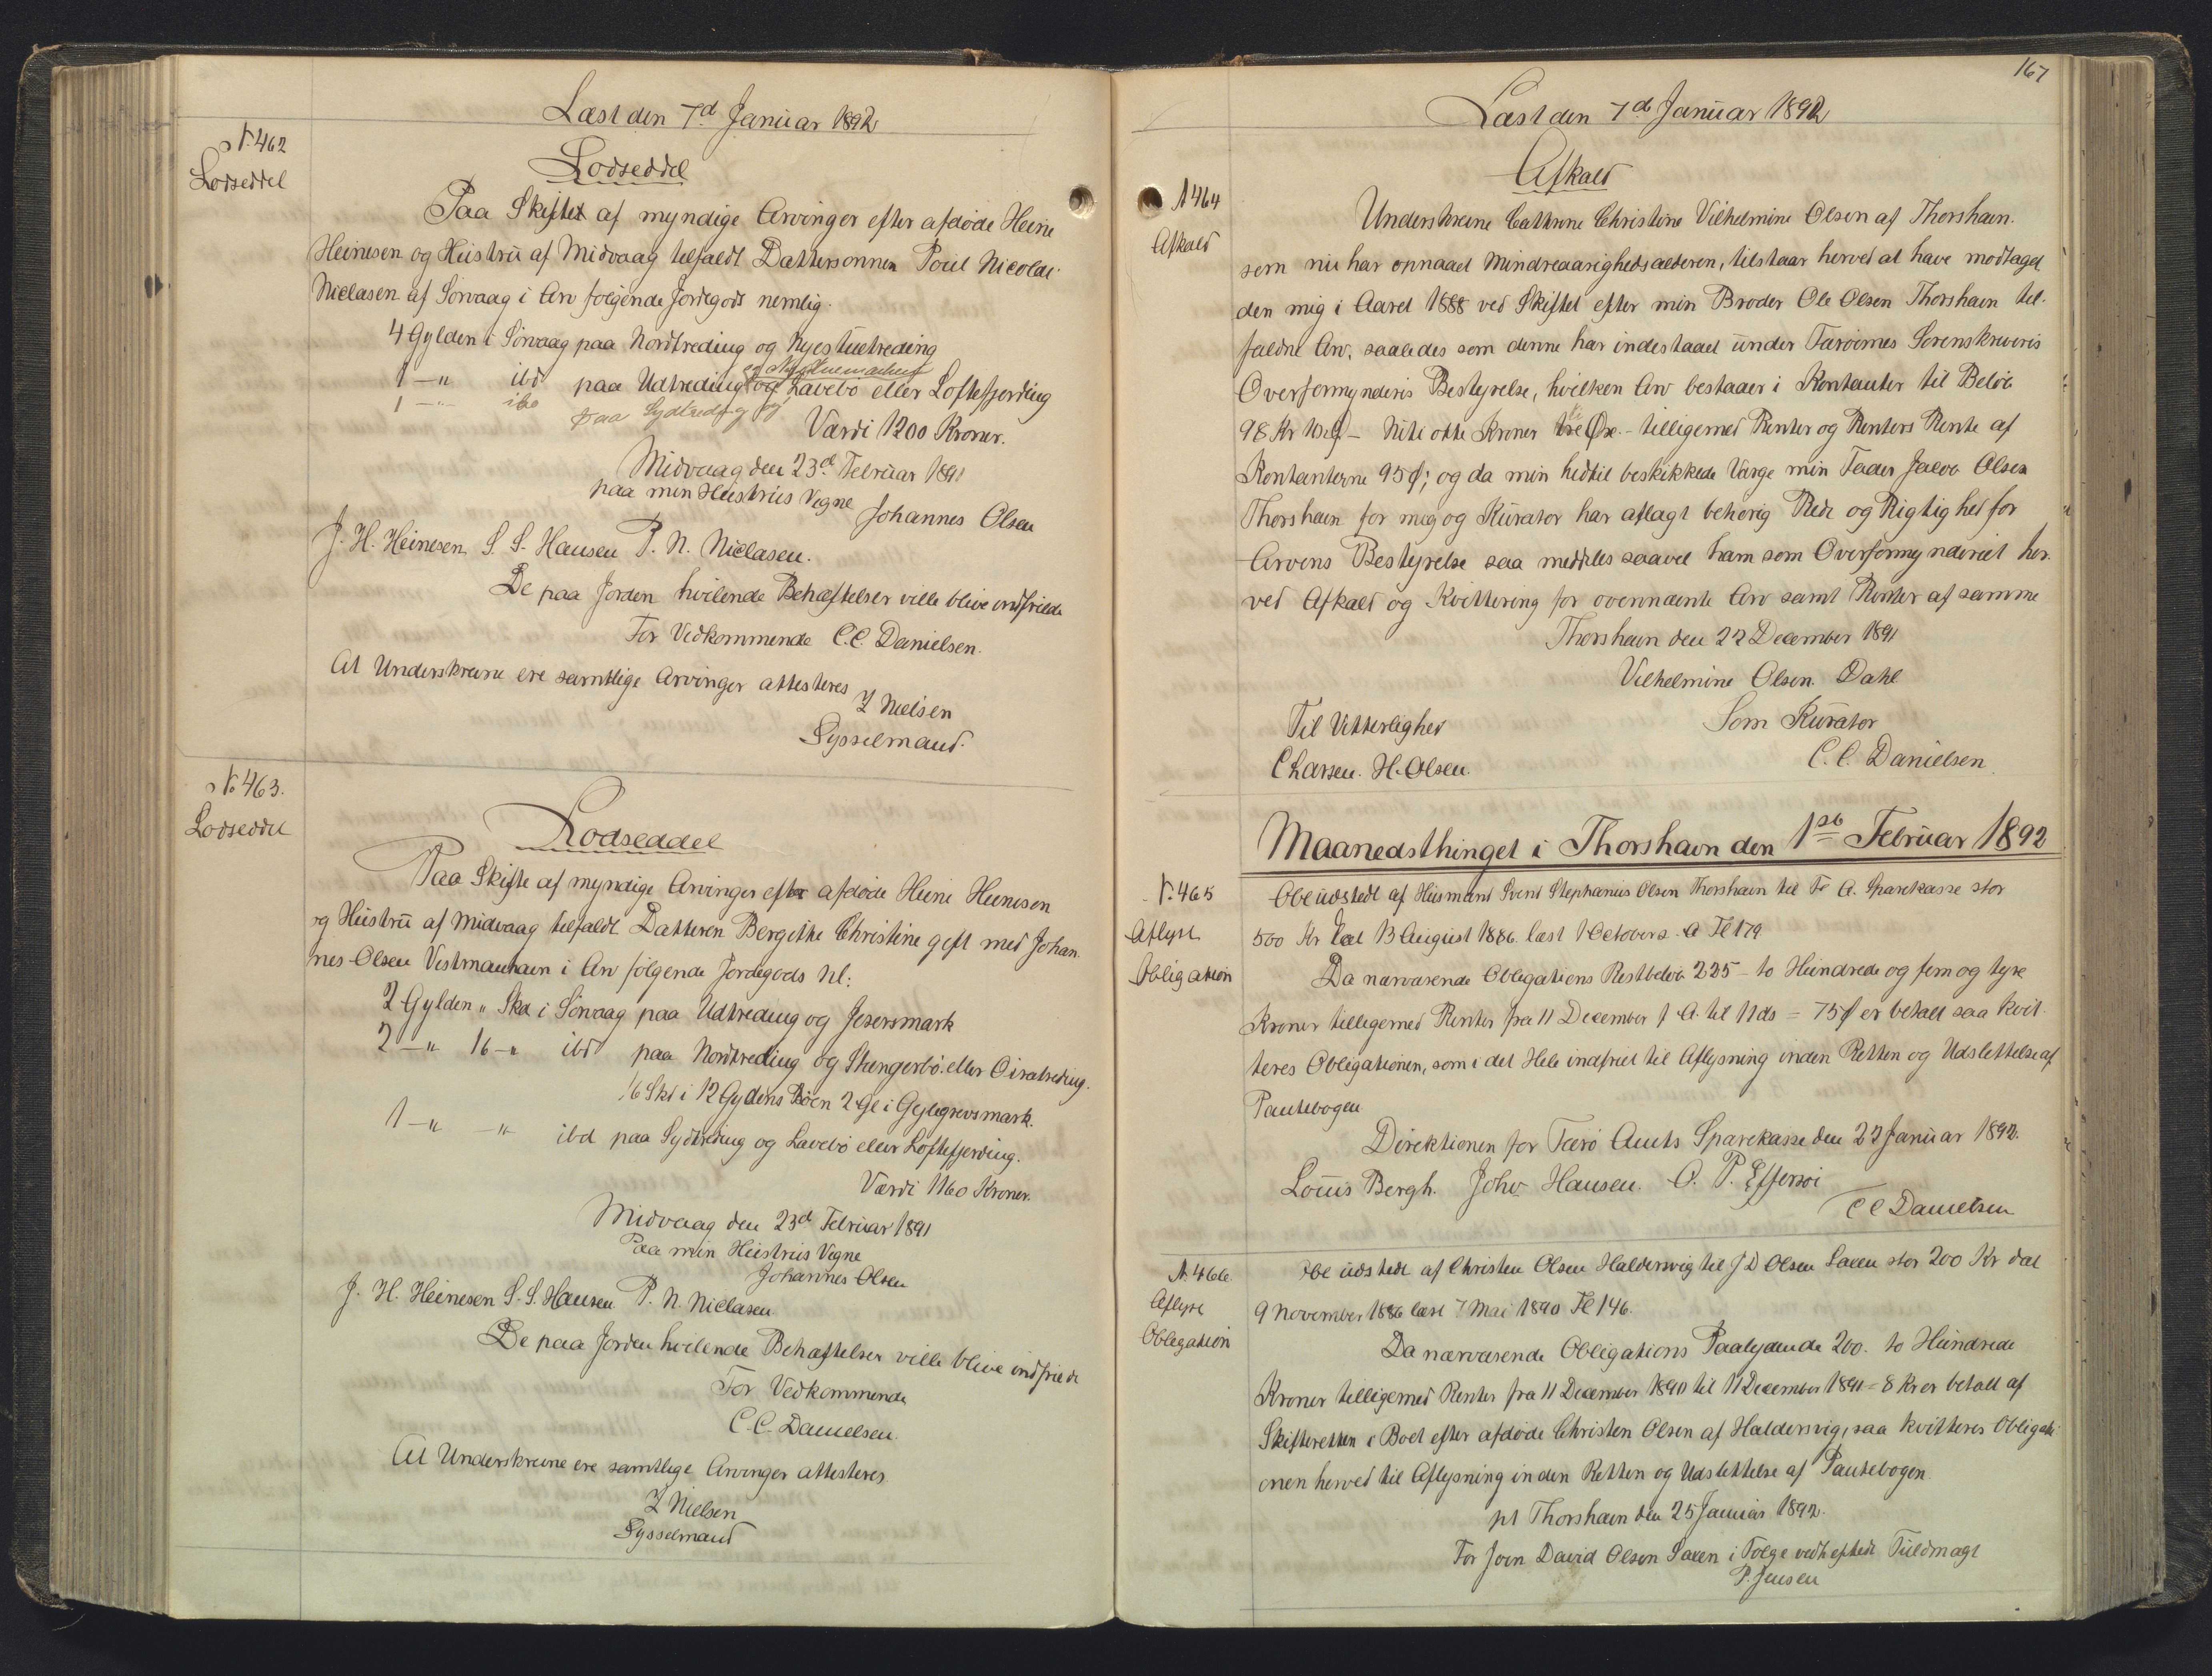 Læst den 7d Januar 1892
N. 462
Lodseddel
Lodseddel
Paa Skiftet af myndige Arvinger efter afdøde Heine
Heinesen og Hustru af Midvaag tilfaldt Dattersønnen Poul Nicolai
Niclasen af Sørvaag i Arv følgende Jordegods nemlig.
4 Gylden i Sørvaag paa Nordtreding og Nyestuetreding
1 — " ibd paa Udtreding og Lavebø eller Loftefjerding
1 — " ibd paa Sydtreding og
Værdi 1200 Kroner.
Midvaag den 23d Februar 1891
paa min Hustrus Vegne Johannes Olsen
J. H. Heinesen S. S. Hansen P. N. Niclasen.
De paa Jorden hvilende Behæftelser ville blive indfriede
For Vedkommende C. C. Danielsen.
At Underskrevne ere samtlige Arvinger attesteres
Z Nielsen
Sysselmand.
No 463.
Lodseddel
Lodseddel
Paa Skifte af myndige Arvinger efter afdøde Heine Heinesen
og Hustru af Midvaag tilfaldt Datteren Bergithe Christine gift med Johan
nes Olsen Vestmanhavn i Arv følgende Jordegods nl:
2 Gylden " Skd i Sørvaag paa Udtreding og Jesersmark
2 — " 16 — " ibd paa Nordtreding og Skengerbø eller Oiratreding.
16 Skd i 12 Gyldens Bøen 2 Gl i Gejlegrevsmark.
1 — " — " ibd paa Sydtreding og Lavebø eller Loftefjerding.
Værdi 1160 Kroner.
Midvaag den 23d Februar 1891
Paa min Hustrus Vegne
Johannes Olsen
J. H. Heinesen S. S. Hansen P. N. Niclasen
De paa Jorden hvilende Behæftelser ville blive indfriede
For Vedkommende
C. C. Danielsen.
At Underskrevne ere samtlige Arvinger attesteres
Z Nielsen
Sysselmand
167
Læst den 7d Januar 1892
N 464
Afkald
Afkald
Underskrevne Cathrine Christine Vilhelmine Olsen af Thorshavn.
som nu har opnaaet Mindreaarighedsalderen, tilstaar herved at have modtaget
den mig i Aaret 1888 ved Skiftet efter min Broder Ole Olsen Thorshavn til-
faldne Arv, saaledes som denne har indestaaet under Færøernes Sorenskriveris
Overformynderis Bestyrelse, hvilken Arv bestaaer i Kontanter til Beløb
98 Kr — Niti otte Kroner Øre. — tilligemed Renter og Renters Rente af
Kontanterne 95 Ø; og da min hidtil beskikkede Værge min Fader Jacob Olsen
Thorshavn for mig og Kurator har aflagt behørig Rede og Rigtighed for
Arvens Bestyrelse saa meddeles saavel ham som Overformynderiet her-
ved Afkald og Kvittering for ovennævnte Arv samt Renter af samme
Thorshavn den 22 December 1891
Vilhelmine Olsen Dahl
Til Vitterlighed Som Kurator
C Larsen. H. Olsen. C. C. Danielsen
Maanedsthinget i Thorshavn den 1ste Februar 1892
N. 465
Aflyst
Obligation
Obl udstedt af Husmand Svend Stephanus Olsen Thorshavn til Fr A. Sparekasse stor
500 Kr dat 13 August 1886. læst 1 October s. A Fl 179
Da nærværende Obligations Restbeløb 225 — to Hundrede og fem og tyve
Kroner tilligemed Renter fra 11 December f A. til 11 ds = 75 Ø er betalt saa kvit-
teres Obligationen, som i det Hele indfriet til Aflysning inden Retten og Udslettelse af
Pantebogen
Direktionen for Færø Amts Sparekasse den 22 Januar 1892.
Louis Bergh. Johs Hansen. O. P. Effersøi
C C Danielsen
N. 466
Aflyst
Obligation
Obl udstedt af Christen Olsen Haldersvig til J D Olsen Saxen stor 200 Kr dat
9 November 1886 læst 7 Mai 1890 Fl 146.
Da nærværende Obligations Paalydende 200. to Hundrede
Kroner tilligemed Renter fra 11 December 1890 til 11 December 1891 = 8 Kr er betalt af
Skifteretten i Boet efter afdøde Christen Olsen af Haldersvig, saa kvitteres Obligati-
onen herved til Aflysning inden Retten og Udslettelse af Pantebogen
pt Thorshavn den 25 Januar 1892.
For Joen David Olsen Saxen i Følge vedheftede Fuldmagt
P. Jensen